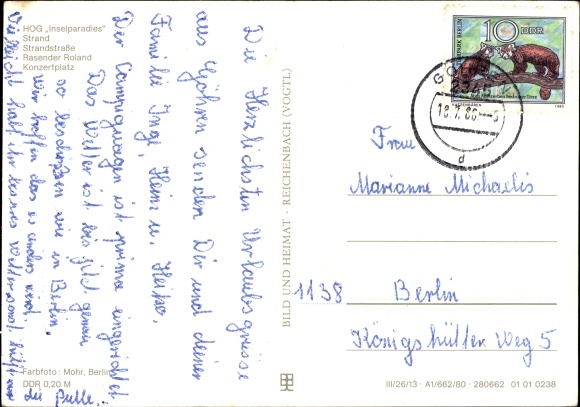 HOG „Inselparadies"
Strand
Strandstraße
Rasender Roland
Konzertplatz
Die Herzlichsten Urlaubsgrüsse
aus Göhren senden Dir und deiner
Familie Inge, Heinz u. Heiko.
Der Campingwagen ist prima eingerichtet
Das Wetter ist bis jetzt genau
so beschissen wie in Berlin.
Wir hoffen das es anders wird.
Vielleicht habt ihr
die Pulle.
Farbfoto: Mohr, Berlin
DDR 0,20 M
BILD UND HEIMAT · REICHENBACH (VOGTL)
10 DDR
18.7.80
d
Frau
Marianne Michaelis
1138 Berlin
Königshütter Weg 5
III/26/13 · A1/662/80 · 280662 01 01 0238